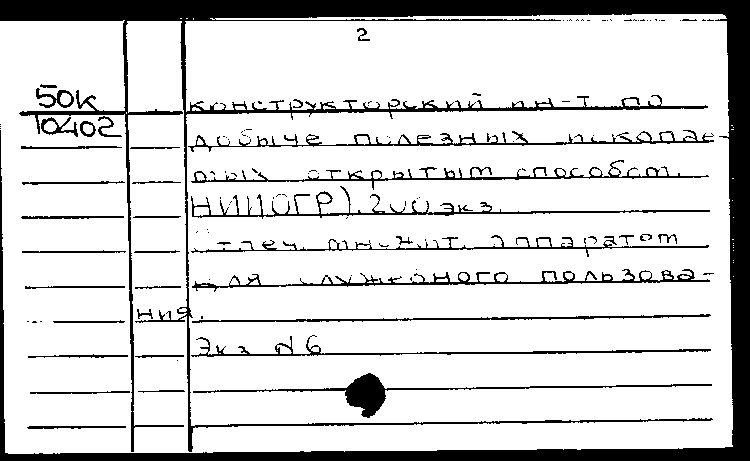 2
50к
10402
конструкторский ин-т по
добыче полезных ископае-
мых открытым способом.
НИИОГР). 200 экз.
Отпеч. мн-жит. аппаратом
для служебного пользова-
ния.
Экз N 6